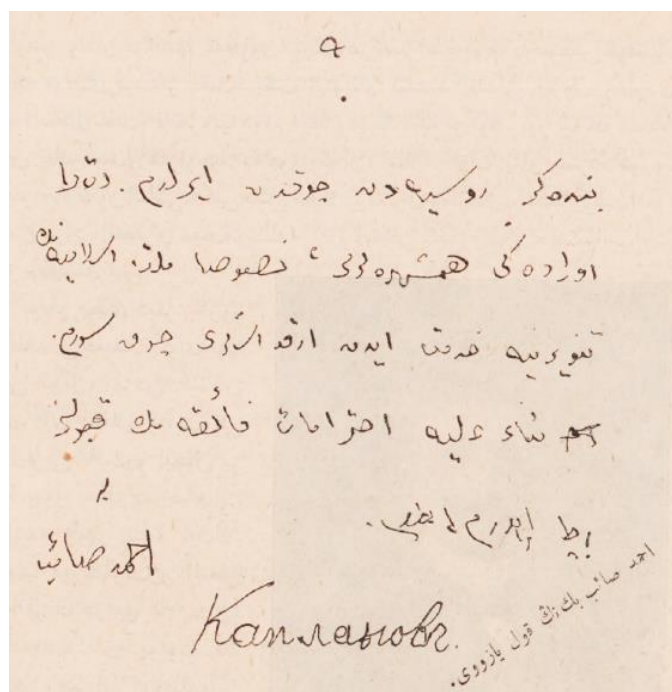 ٩
بنده كز روسيه دن چوقدن ايرلدم. دها
اوراده كى همشهريلرى، خصوصا ملت اسلاميه نك
تنويرينه خدمت ايدن ارقداشلرى چوق سورم.
بناء عليه احترامات فائقه مك قبولنى
رجا ايدرم افندم.
احمد صائب
Каплановъ.
احمد صائب بك نڭ قول يازووى.